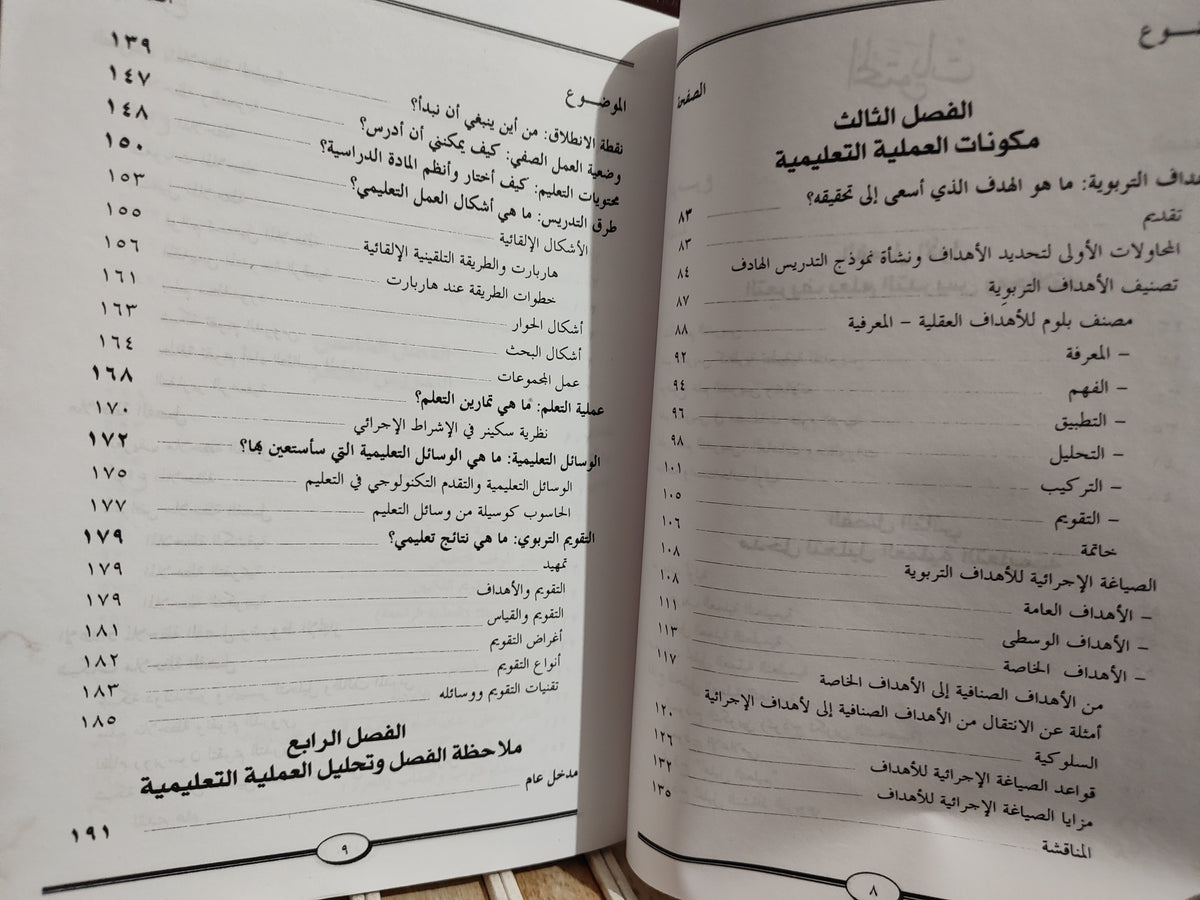 ـوع
الصفحة
الفصل الثالث
مكونات العملية التعليمية
هداف التربوية: ما هو الهدف الذي أسعى إلى تحقيقه؟ ٨٣
تقديم ٨٣
المحاولات الأولى لتحديد الأهداف ونشأة نموذج التدريس الهادف ٨٤
تصنيف الأهداف التربوية ٨٧
مصنف بلوم للأهداف العقلية – المعرفية ٨٨
– المعرفة ٩٢
– الفهم ٩٤
– التطبيق ٩٦
– التحليل ٩٨
– التركيب ١٠١
– التقويم ١٠٥
خاتمة ١٠٦
الصياغة الإجرائية للأهداف التربوية ١٠٨
– الأهداف العامة ١٠٨
– الأهداف الوسطى ١١١
– الأهداف الخاصة ١١٣
من الأهداف الصنافية إلى الأهداف الخاصة ١١٧
أمثلة عن الانتقال من الأهداف الصنافية إلى لأهداف الإجرائية
السلوكية ١٢٠
قواعد الصياغة الإجرائية للأهداف ١٢٦
مزايا الصياغة الإجرائية للأهداف ١٣٢
المناقشة ١٣٥
٨
الموضـوع
نقطة الانطلاق: من أين ينبغي أن نبدأ؟ ١٣٩
وضعية العمل الصفي: كيف يمكنني أن أدرس؟ ١٤٧
محتويات التعليم: كيف أختار وأنظم المادة الدراسية؟ ١٤٨
طرق التدريس: ما هي أشكال العمل التعليمي؟ ١٥٠
الأشكال الإلقائية ١٥٣
هاربارت والطريقة التلقينية الإلقائية ١٥٥
خطوات الطريقة عند هاربارت ١٥٦
أشكال الحوار ١٦١
أشكال البحث ١٦٣
عمل المجموعات ١٦٤
عملية التعلم: ما هي تمارين التعلم؟ ١٦٨
نظرية سكينر في الإشراط الإجرائي ١٧٠
الوسائل التعليمية: ما هي الوسائل التعليمية التي سأستعين بها؟ ١٧٢
الوسائل التعليمية والتقدم التكنولوجي في التعليم ١٧٥
الحاسوب كوسيلة من وسائل التعليم ١٧٧
التقويم التربوي: ما هي نتائج تعليمي؟ ١٧٩
تمهيد ١٧٩
التقويم والأهداف ١٧٩
التقويم والقياس ١٨١
أغراض التقويم ١٨٢
أنواع التقويم ١٨٣
تقنيات التقويم ووسائله ١٨٥
الفصل الرابع
ملاحظة الفصل وتحليل العملية التعليمية
مدخل عام ١٩١
٩